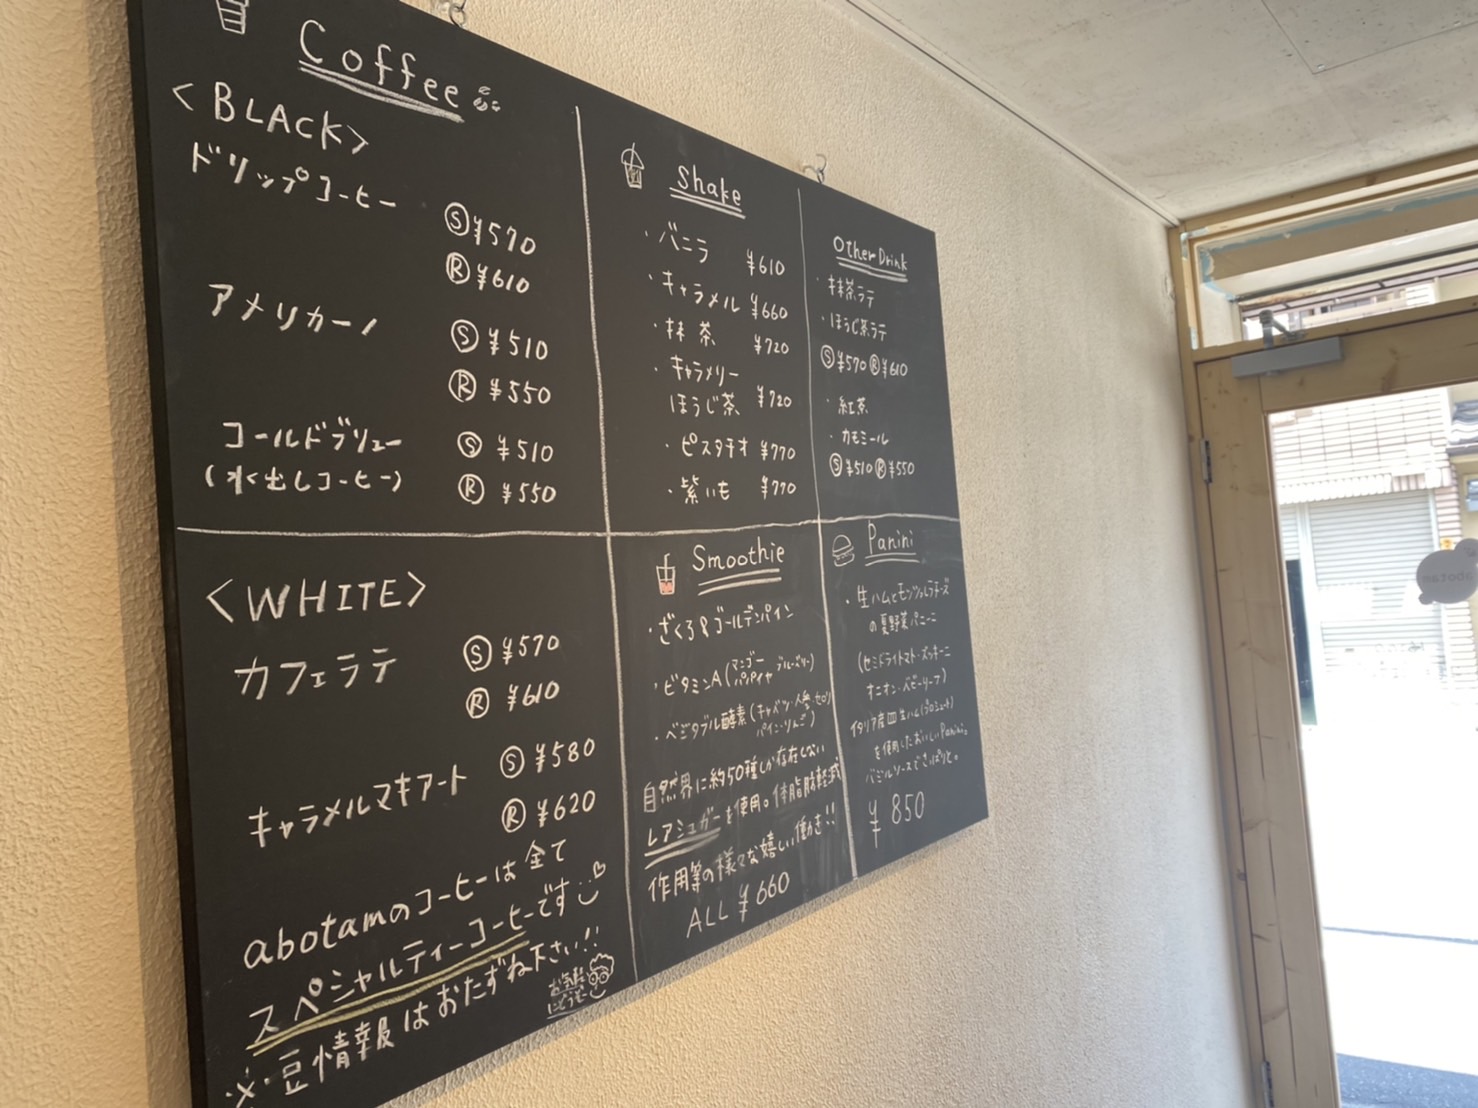 Coffee
<BLACK>
ドリップコーヒー
Ⓢ¥570
Ⓡ¥610
アメリカーノ
Ⓢ ¥510
Ⓡ ¥550
コールドブリュー
(水出しコーヒー)
Ⓢ ¥510
Ⓡ ¥550
<WHITE>
カフェラテ
Ⓢ ¥570
Ⓡ ¥610
キャラメルマキアート
Ⓢ ¥580
Ⓡ ¥620
abotamのコーヒーは全て
スペシャルティーコーヒーです
※・豆情報はおたずね下さい!!
お気軽に
どうぞ
Shake
・バニラ ¥610
・キャラメル ¥660
・抹茶 ¥720
・キャラメリー
ほうじ茶 ¥720
・ピスタチオ ¥770
・紫いも ¥770
Other Drink
・抹茶ラテ
・ほうじ茶ラテ
Ⓢ¥570Ⓡ¥610
・紅茶
・カモミール
Ⓢ¥510Ⓡ¥550
Smoothie
・ざくろ&ゴールデンパイン
・ビタミンA(マンゴー パパイヤ ブルーベリー)
・ベジタブル酵素(キャベツ・人参・セロリ
パイン・りんご)
自然界に約50種しか存在しない
レアシュガーを使用。体脂肪軽減
作用等の様々な嬉しい働き!!
ALL ¥660
Panini
・生ハムとモッツァレラチーズ
の夏野菜パニーニ
(セミドライトマト・ズッキーニ
オニオン・ベビーリーフ)
イタリア産生ハム(プロシュート)
を使用したおいしいPanini。
バジルソースでさっぱりと。
¥850
abotam